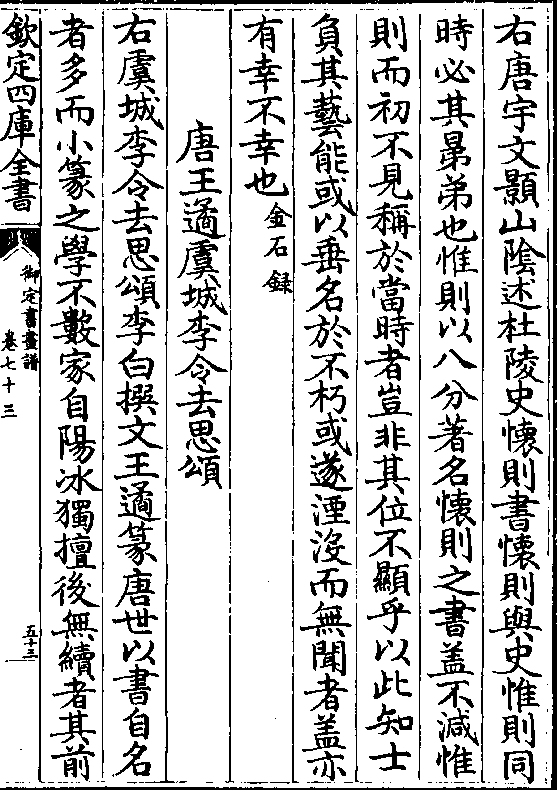 右唐宇文顥山陰述杜陵史懐則書懐則與史惟則同
時必其昻弟也惟則以八分著名懐則之書蓋不減惟
則而初不見稱於當時者豈非其位不顯乎以此知士
負其藝能或以垂名於不朽或遂湮沒而無聞者蓋亦
有幸不幸也金石録
唐王遹虞城李令去思頌
右虞城李令去思頌李白撰文王遹篆唐世以書自名
者多而小篆之學不數家自陽冰獨擅後無續者其前
欽定四庫全書
御定書畫譜
卷七十三
五十三